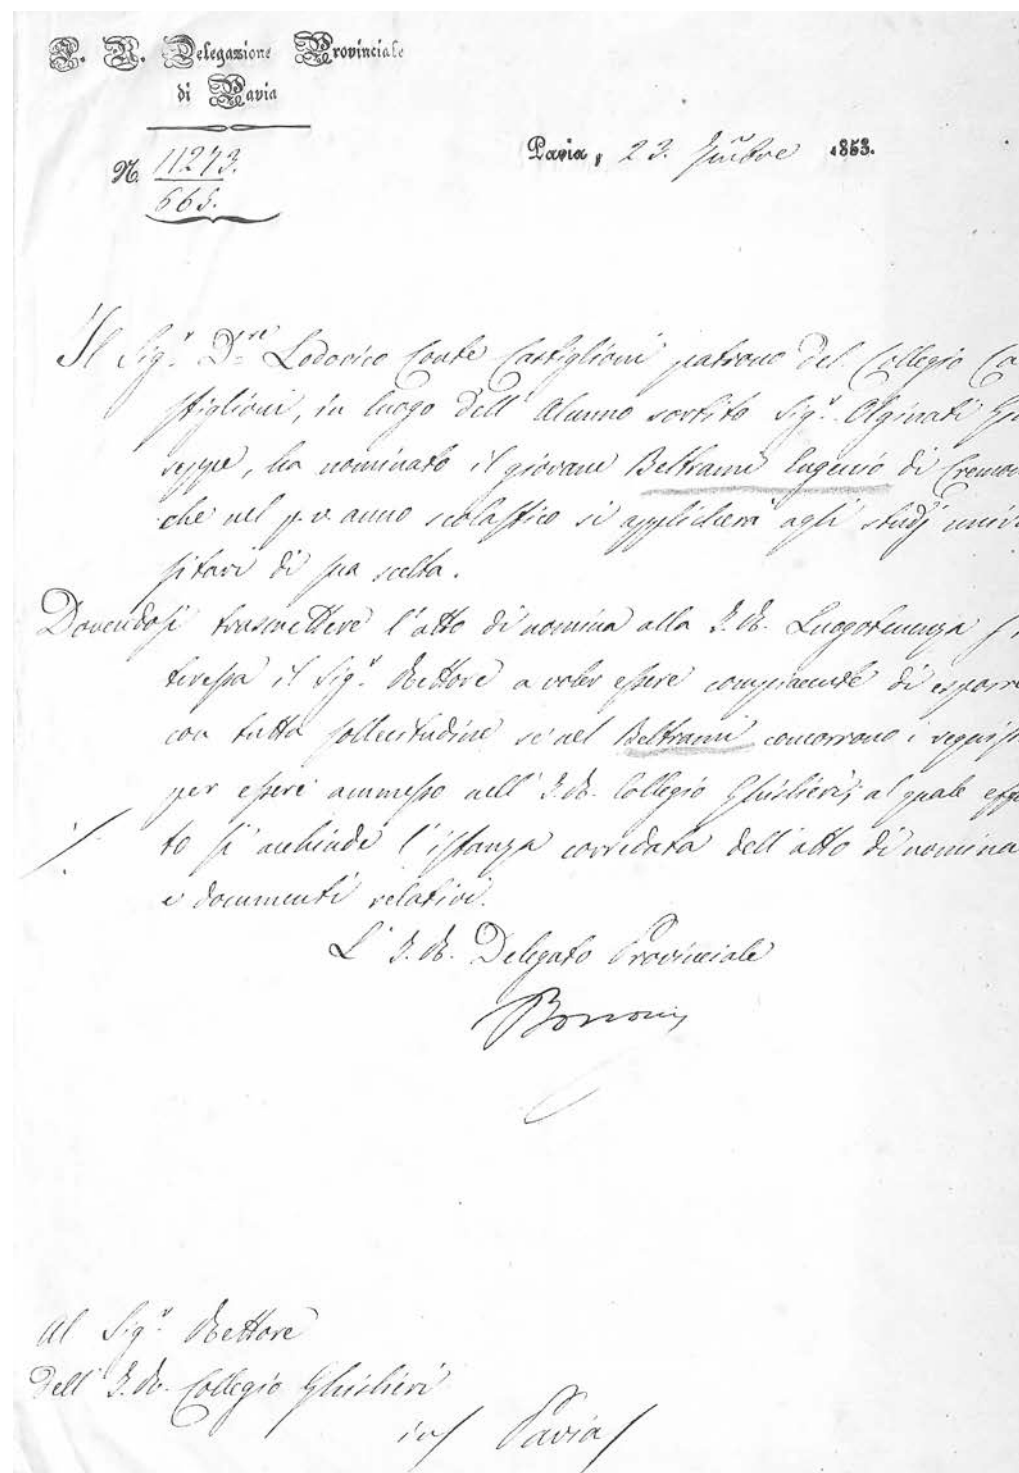 I. R. Delegazione Provinciale
di Pavia
N. 11273.
665.
Pavia, 23. 1853.
Il Sig.r D.n Lodovico Conte Castiglioni patrono del Collegio Ca
stiglioni, in luogo dell' Alunno sortito Sig.r Olginati Giu
seppe, ha nominato il giovane Beltrami Eugenio di Cremon
che nel p.v. anno scolastico si applicherà agli studj univer
sitari di sua scelta.
Dovendosi trasmettere l'atto di nomina alla I. R. Luogotenenza
teressa il Sig.r Rettore a voler essere compiacente di esporre
con tutta sollecitudine se nel Beltrami concorrono i requisi
per essere ammesso nell' I. R. Collegio Ghislieri; al quale effe
to si acchiude l'istanza corredata dell'atto di nomina
e documenti relativi.
L' I. R. Delegato Provinciale
Al Sig.r Rettore
Dell' I. R. Collegio Ghislieri
in Pavia